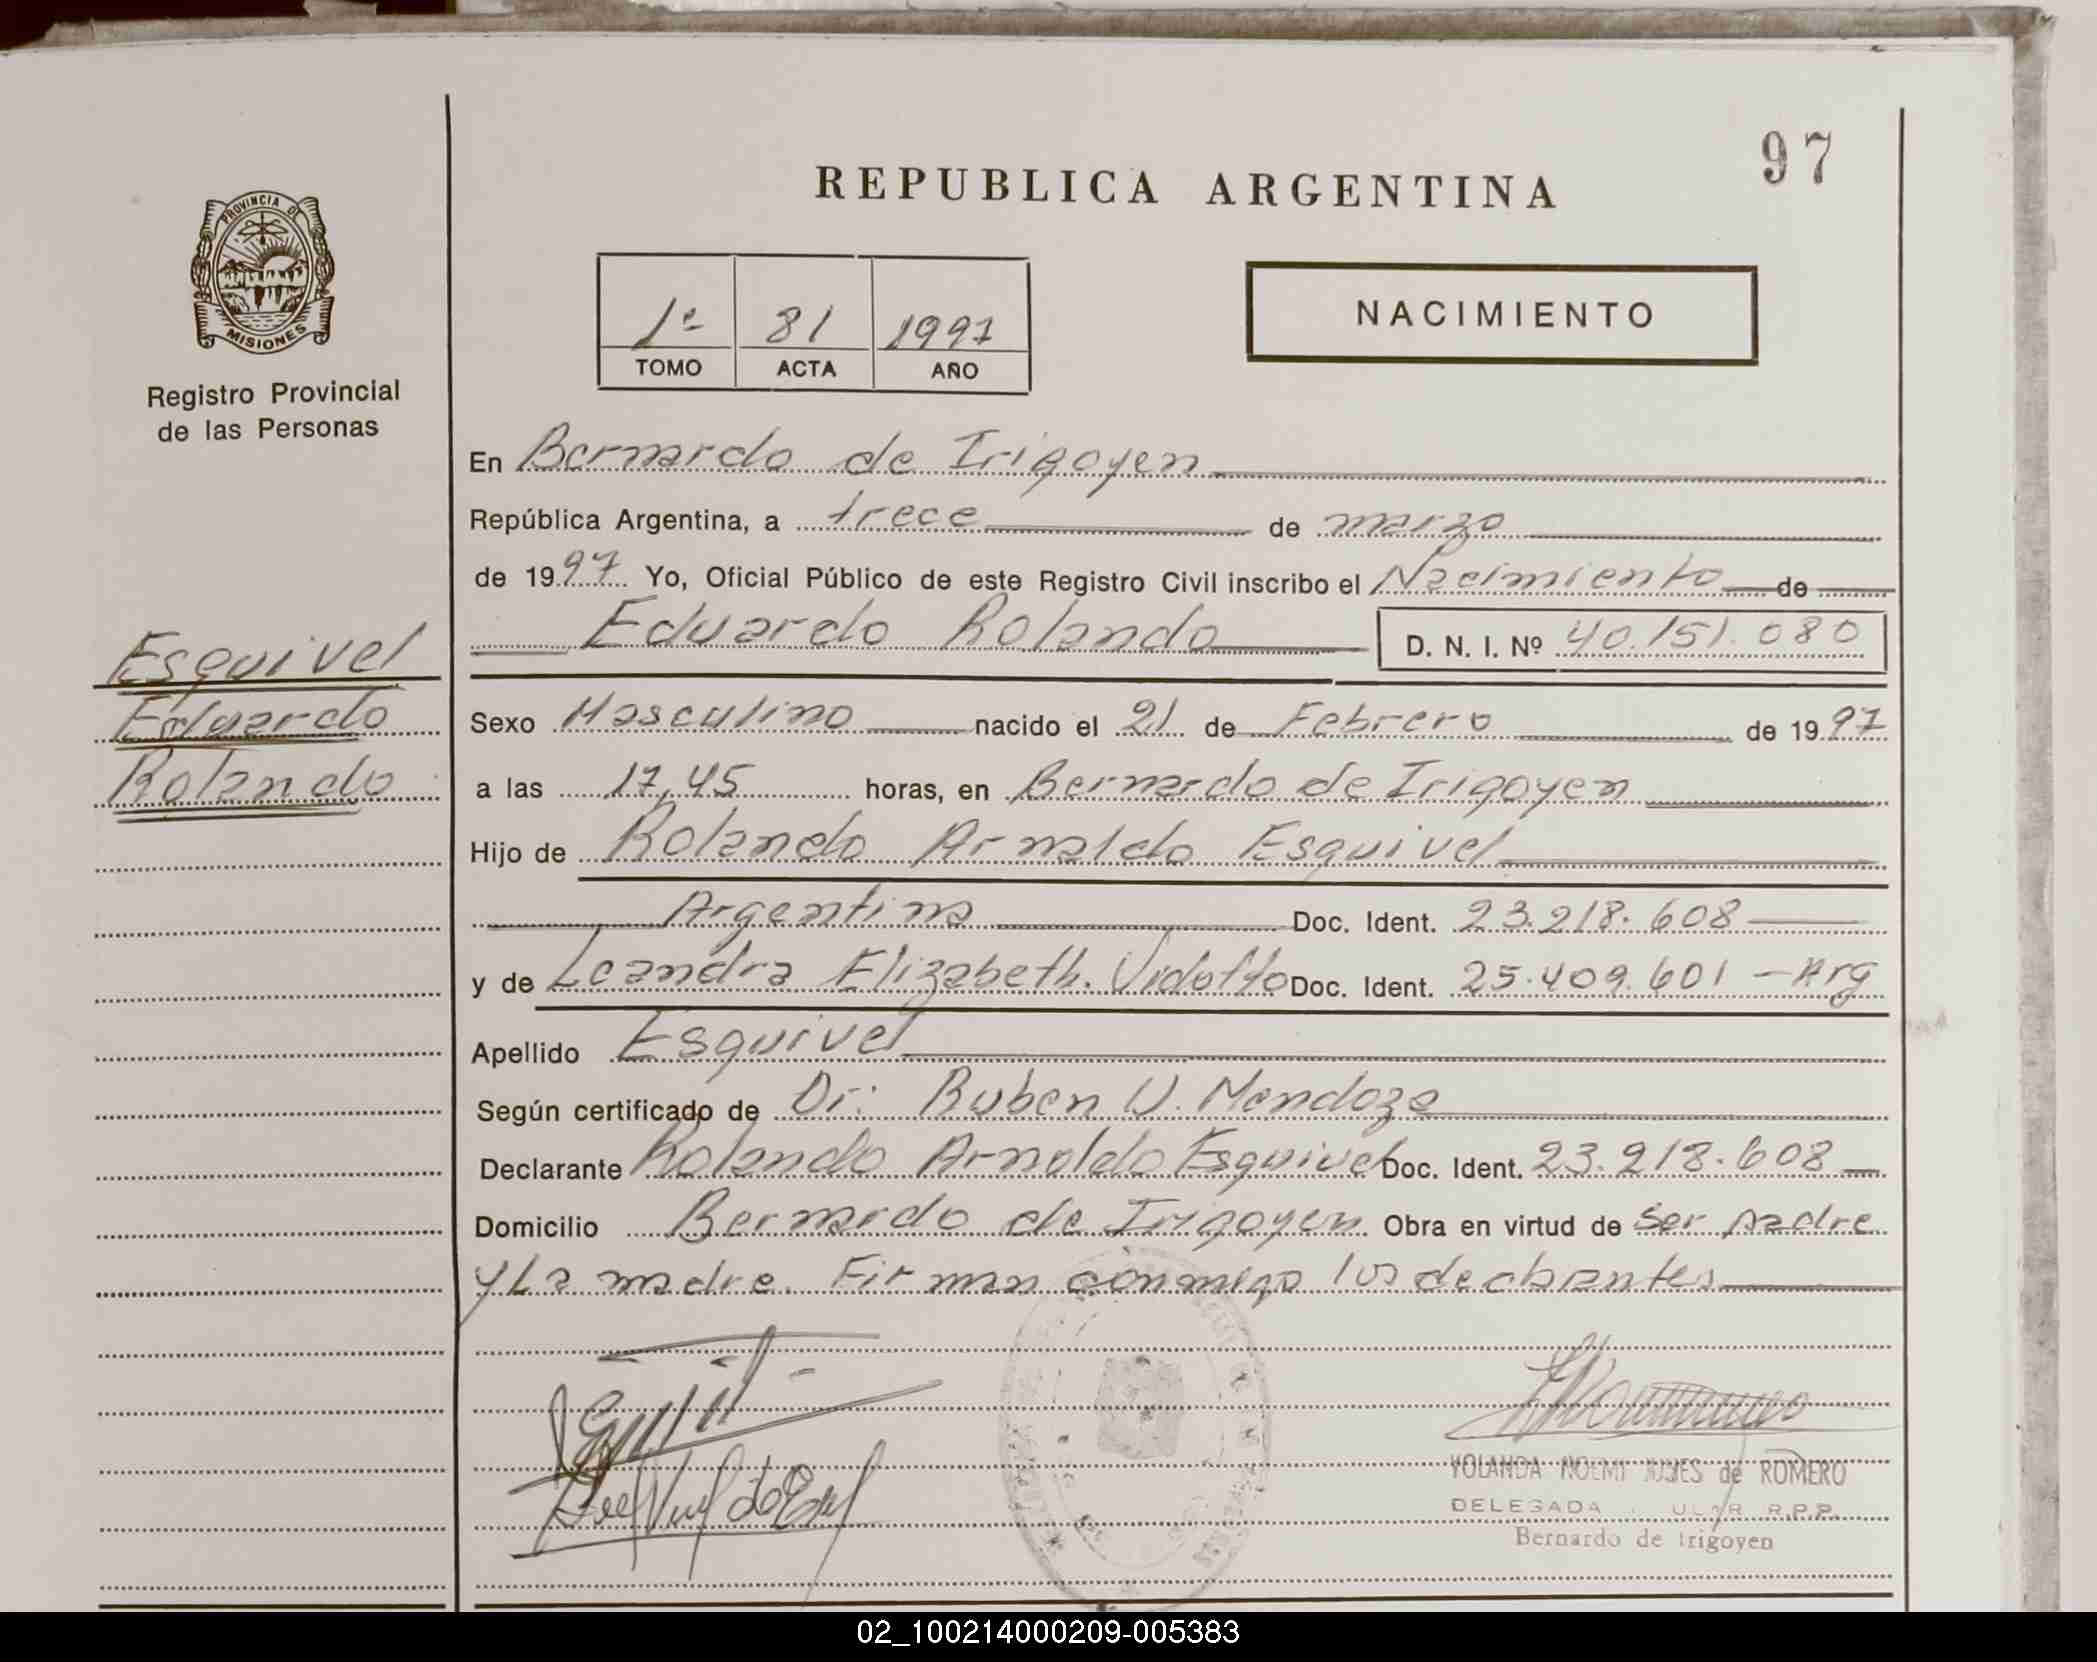 97
REPUBLICA ARGENTINA
PROVINCIA DE
MISIONES
Registro Provincial
de las Personas
1º 81 1997
TOMO ACTA AÑO
NACIMIENTO
En Bernardo de Irigoyen
República Argentina, a trece de marzo
de 1997 Yo, Oficial Público de este Registro Civil inscribo el Nacimiento de
Eduardo Rolando D. N. I. Nº 40.151.080
Esquivel
Eduardo
Rolando
Sexo Masculino nacido el 21 de Febrero de 1997
a las 17,45 horas, en Bernardo de Irigoyen
Hijo de Rolando Arnaldo Esquivel
Argentina Doc. Ident. 23.218.608
y de Leandra Elizabeth. Vidotto Doc. Ident. 25.409.601 - Arg
Apellido Esquivel
Según certificado de Dr: Ruben V. Mendoza
Declarante Rolando Arnaldo Esquivel Doc. Ident. 23.218.608
Domicilio Bernardo de Irigoyen Obra en virtud de ser padre
y La madre. Firman conmigo los declarantes
YOLANDA NOEMI de ROMERO
DELEGADA R.P.P.
Bernardo de Irigoyen
02_100214000209-005383